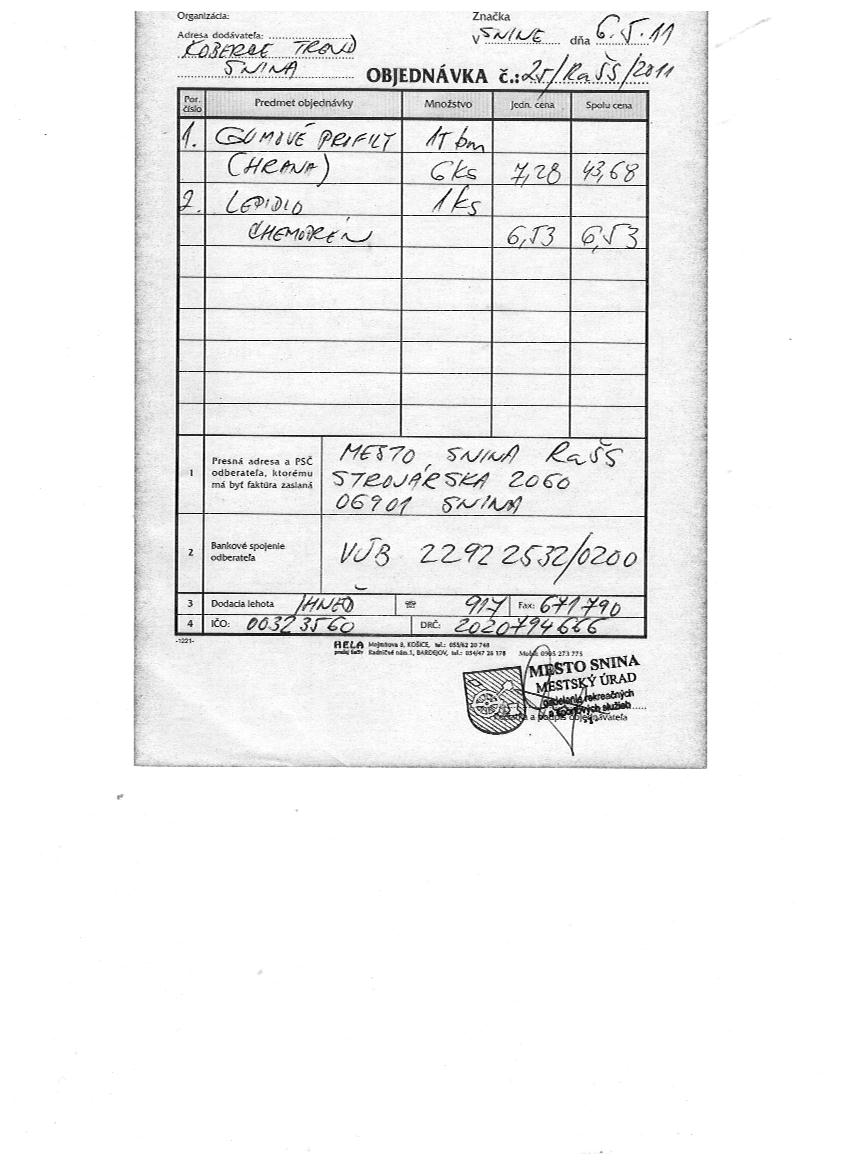 Organizácia:
Značka
Adresa dodávateľa:
V SNINE dňa 6.5.11
KOBERCE TREND
SNINA
OBJEDNÁVKA č.: 25/RaŠS/2011
Por. číslo Predmet objednávky Množstvo Jedn. cena Spolu cena
1. GUMOVÉ PROFILY 15 bm
(HRANA) 6 ks 7,28 43,68
2. LEPIDLO 1 ks
CHEMOPRÉN 6,53 6,53
1 Presná adresa a PSČ odberateľa, ktorému má byť faktúra zaslaná
MESTO SNINA RaŠS
STROJÁRSKA 2060
06901 SNINA
2 Bankové spojenie odberateľa
VÚB 22922532/0200
3 Dodacia lehota IHNEĎ ☎ 917 Fax: 671790
4 IČO: 00323560 DRČ: 2020794666
-1221-
HELA Mojmírova 8, KOŠICE, tel.: 055/62 20 748
predaj tlačív Radničné nám.1, BARDEJOV, tel.: 054/47 26 178 Mobil: 0905 273 775
MESTO SNINA
MESTSKÝ ÚRAD
oddelenie rekreačných
a športových služieb
-1-
Pečiatka a podpis objednávateľa